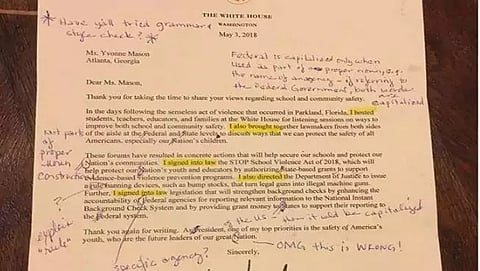 * Have y'all tried grammar &
style check? *
THE WHITE HOUSE
WASHINGTON
May 3, 2018
Ms. Yvonne Mason
Atlanta, Georgia
Federal is capitalized only when
used as part of a proper noun, e.g.
the name of an agency - if referring to
the Federal Government, both words
are
capitalized
Dear Ms. Mason,
Thank you for taking the time to share your views regarding school and community safety.
In the days following the senseless act of violence that occurred in Parkland, Florida, I hosted
students, teachers, educators, and families at the White House for listening sessions on ways to
improve both school and community safety. I also brought together lawmakers from both sides
of the aisle at the Federal and State levels to discuss ways that we can protect the safety of all
Americans, especially our Nation's children.
Not part
of
proper
noun
construction
These forums have resulted in concrete actions that will help secure our schools and protect our
Nation's communities. I signed into law the STOP School Violence Act of 2018, which will
help protect our Nation's youth and educators by authorizing State-based grants to support
evidence-based violence prevention programs. I also directed the Department of Justice to issue
a rule banning devices, such as bump stocks, that turn legal guns into illegal machine guns.
Further, I signed into law legislation that will strengthen background checks by enhancing the
accountability of Federal agencies for reporting relevant information to the National Instant
Background Check System and by providing grant money to States to support their reporting to
the Federal system.
?
explicit
"rule"
of the US - then it'd be capitalized
Thank you again for writing. As President, one of my top priorities is the safety of America's
youth, who are the future leaders of our great Nation.
OMG this is WRONG!
Sincerely,
specific agency?